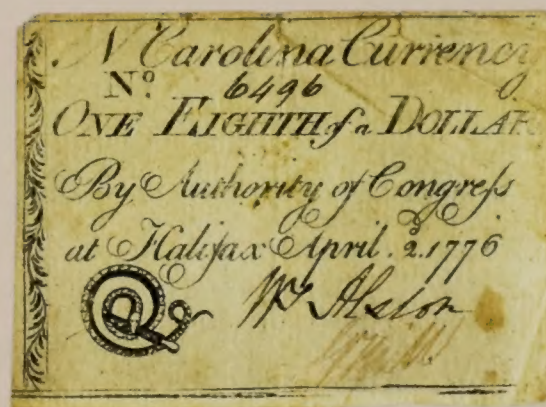 N Carolina Currency
No. 6496
ONE EIGHTH of a DOLLAR
By Authority of Congreſs
at Halifax April. 2d. 1776
Wm Alston